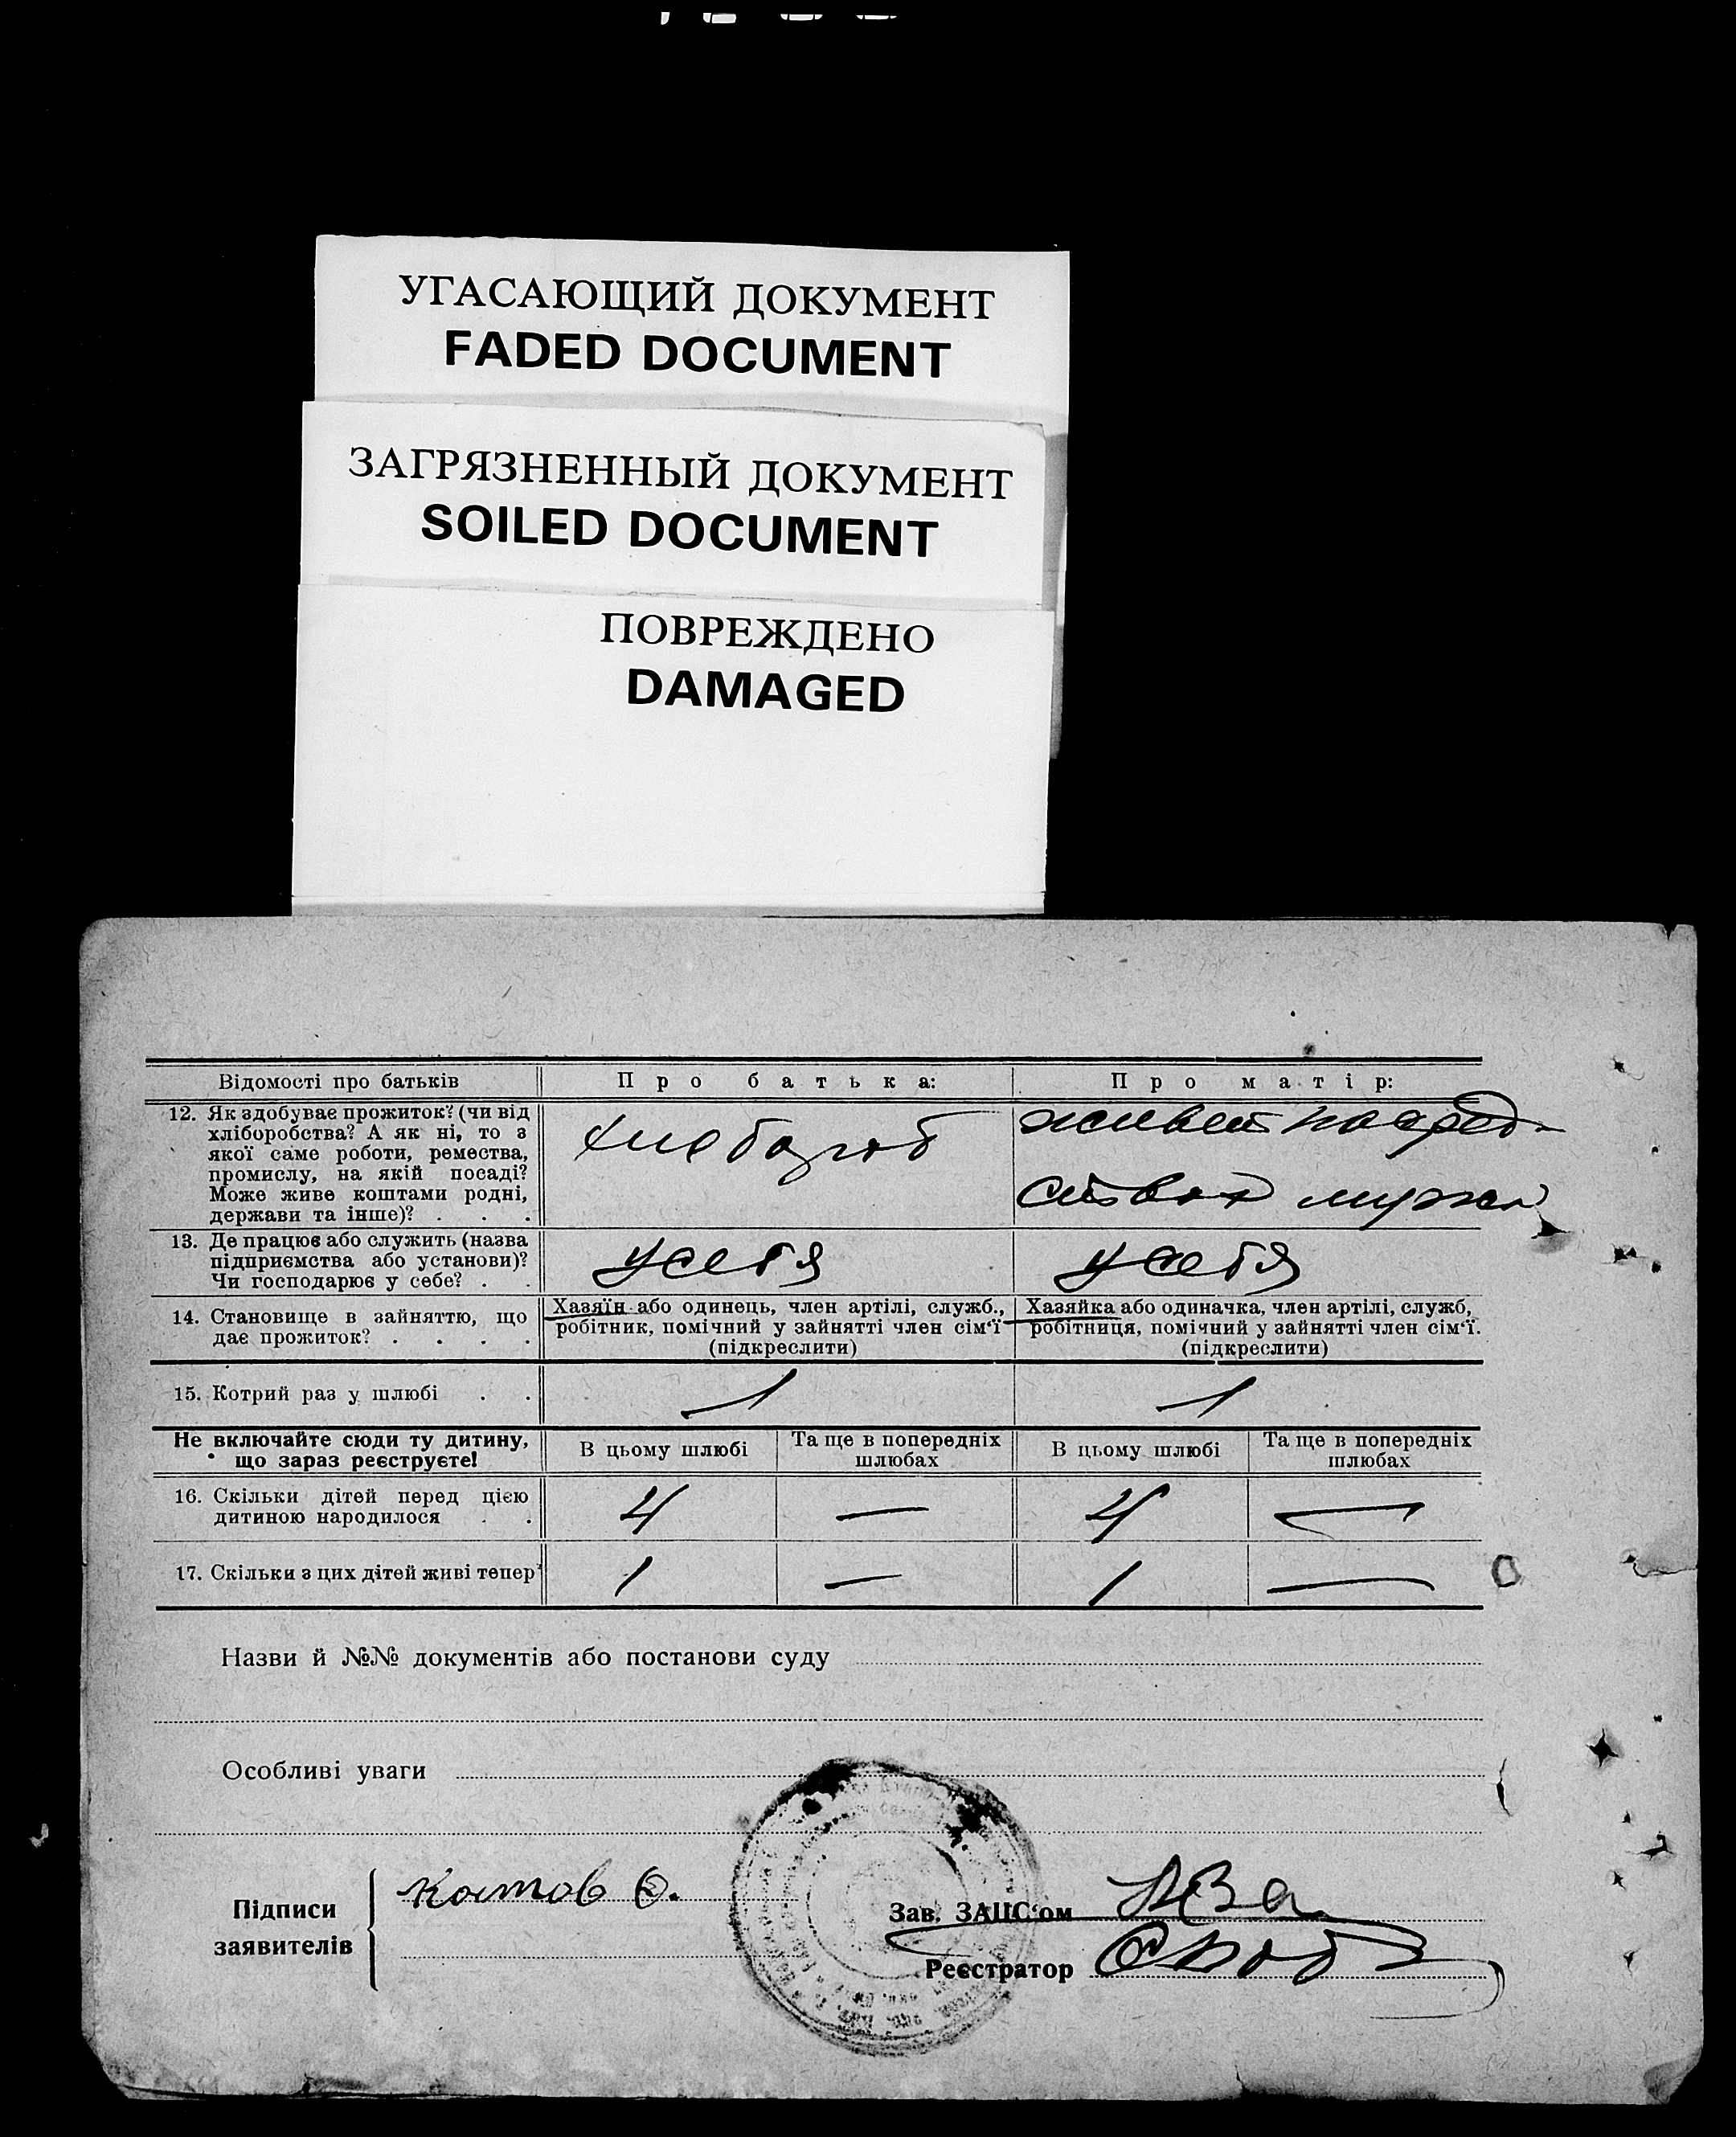 УГАСАЮЩИЙ ДОКУМЕНТ
FADED DOCUMENT
ЗАГРЯЗНЕННЫЙ ДОКУМЕНТ
SOILED DOCUMENT
ПОВРЕЖДЕНО
DAMAGED
Відомості про батьків
Про батька:
Про матір:
12. Як здобуває прожиток? (чи від
хліборобства? А як ні, то з
якої саме роботи, ремества,
промислу, на якій посаді?
Може живе коштами родні,
держави та інше)? . . .
хлебороб
живет на сред-
ства мужа
13. Де працює або служить (назва
підприємства або установи)?
Чи господарює у себе? . .
у себя
у себя
14. Становище в зайняттю, що
дає прожиток? . . . .
Хазяїн або одинець, член артілі, служб.,
робітник, помічний у зайнятті член сім‘ї
(підкреслити)
Хазяйка або одиначка, член артілі, служб,
робітниця, помічний у зайнятті член сім‘ї.
(підкреслити)
15. Котрий раз у шлюбі . .
1
1
Не включайте сюди ту дитину,
що зараз реєструєте!
В цьому шлюбі
Та ще в попередніх
шлюбах
В цьому шлюбі
Та ще в попередніх
шлюбах
16. Скільки дітей перед цією
дитиною народилося . .
4
—
4
—
17. Скільки з цих дітей живі тепер?
1
—
1
—
Назви й №№ документів або постанови суду
Особливі уваги
Підписи
заявителів
Зав. ЗАГС‘ом
Реєстратор